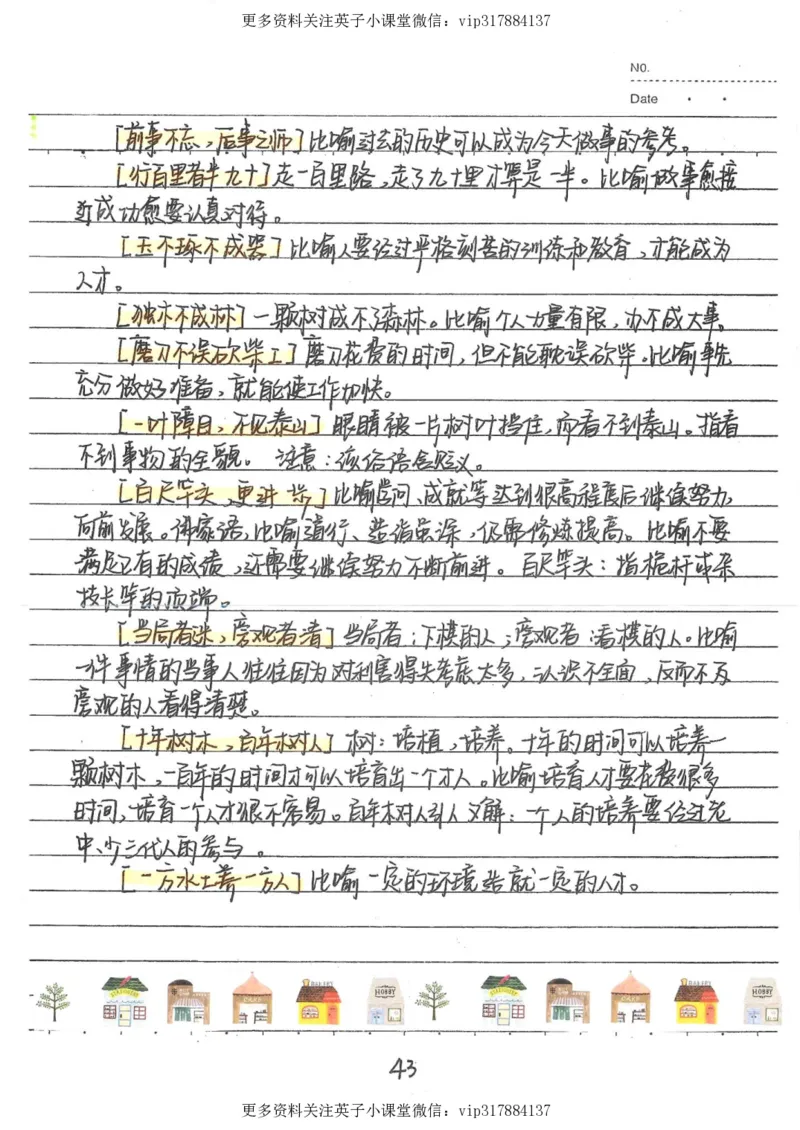 更多资料关注英子小课堂微信：vip317884137
No.
Date
[前事不忘，后事之师]比喻过去的历史可以成为今天做事的参考。
[行百里者半九十]走一百里路，走了九十里才算是一半。比喻做事愈接
近成功愈要认真对待。
[玉不琢不成器]比喻人要经过严格刻苦的训练和教育，才能成为
人才。
[独木不成林]一颗树成不了森林。比喻个人力量有限，办不成大事。
[磨刀不误砍柴工]磨刀花费的时间，但不能耽误砍柴。比喻事先
充分做好准备，就能使工作加快。
[一叶障目，不见泰山]眼睛被一片树叶挡住，而看不到泰山。指看
不到事物的全貌。注意：该俗语含贬义。
[百尺竿头，更进一步]比喻学问、成就等达到很高程度后继续努力，
向前发展。佛家语，比喻道行、造诣虽深，仍需修炼提高。比喻不要
满足已有的成绩，还需要继续努力不断前进。百尺竿头：指桅杆或杂
技长竿的顶端。
[当局者迷，旁观者清]当局者：下棋的人；旁观者：看棋的人。比喻
一件事情的当事人往往因为对利害得失考虑太多，认识不全面，反而不及
旁观的人看得清楚。
[十年树木，百年树人]树：培植，培养。十年的时间可以培养一
颗树木，一百年的时间才可以培育出一个才人。比喻培育人才要花费很多
时间，培育一个人才很不容易。百年树人引人义解：一个人的培养要经过老
中、少三代人的参与。
[一方水土养一方人]比喻一定的环境造就一定的人才。
BAKERY
HOBBY
BAKERY
HOBBY
43
更多资料关注英子小课堂微信：vip317884137